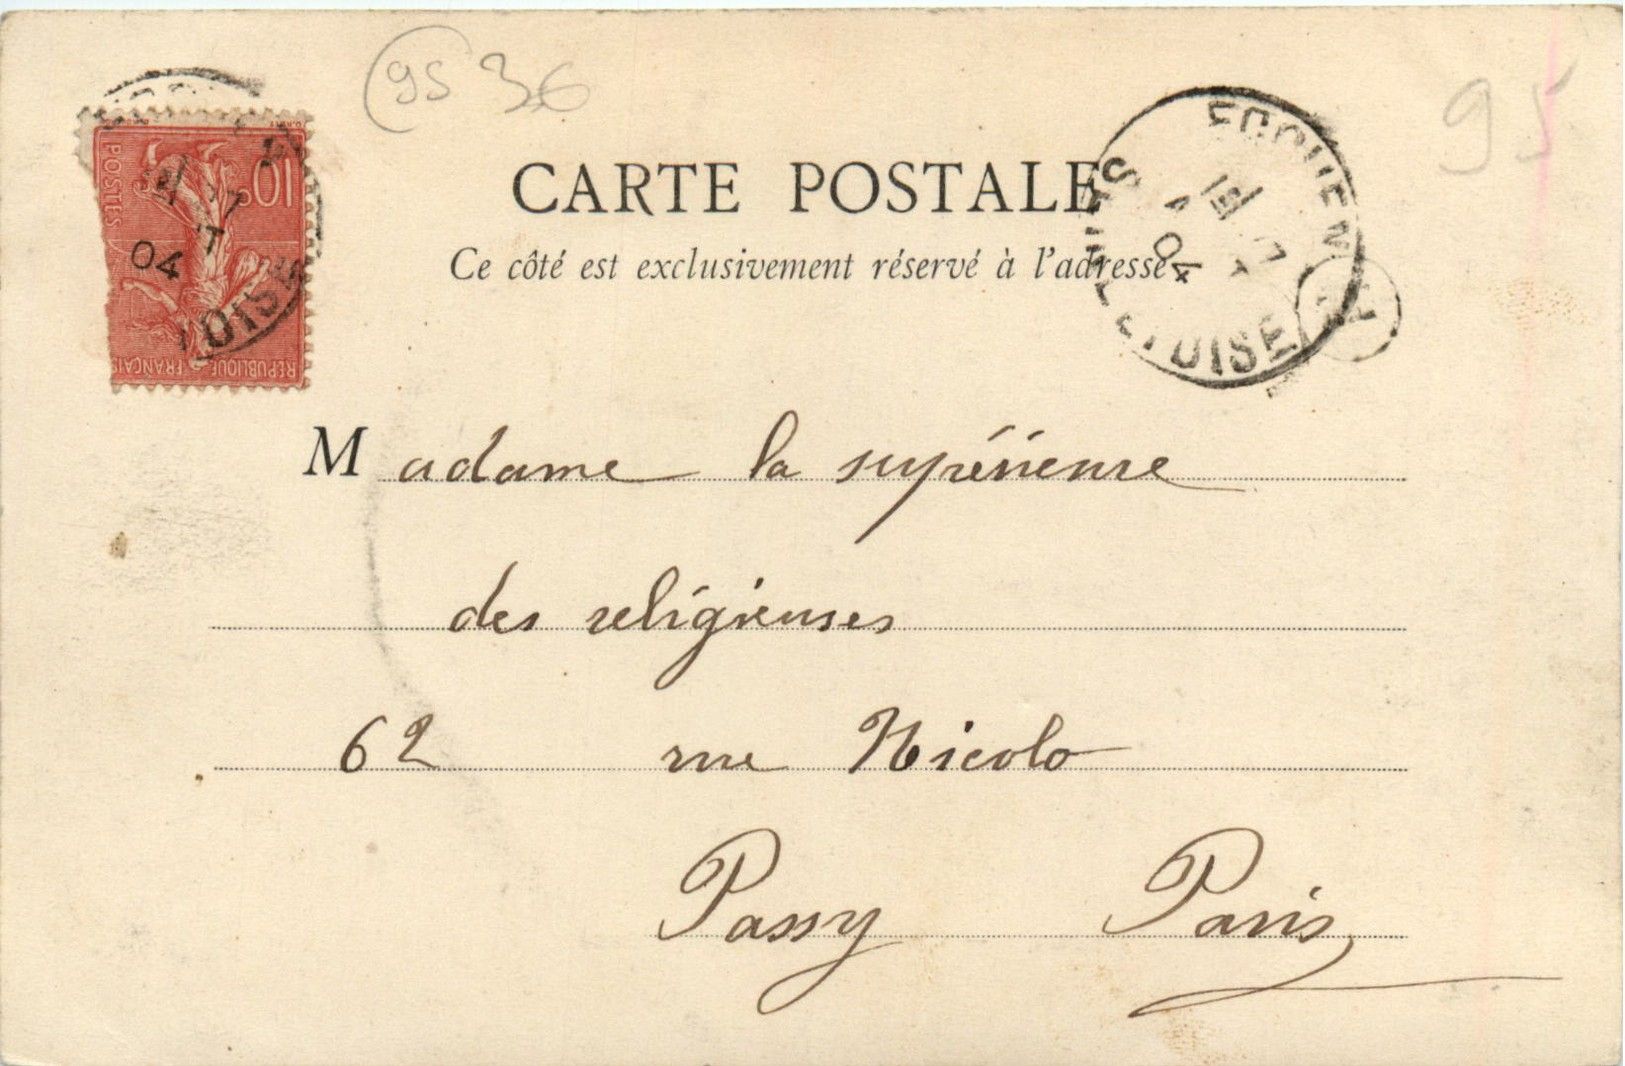 95 36
95
10c
POSTES
RÉPUBLIQUE FRANÇAISE
04
OISE
CARTE POSTALE
Ce côté est exclusivement réservé à l'adresse
ECOUEN
04
SEINE-ET-OISE
Madame la supérieure
des religieuses
62 rue Nicolo
Passy Paris